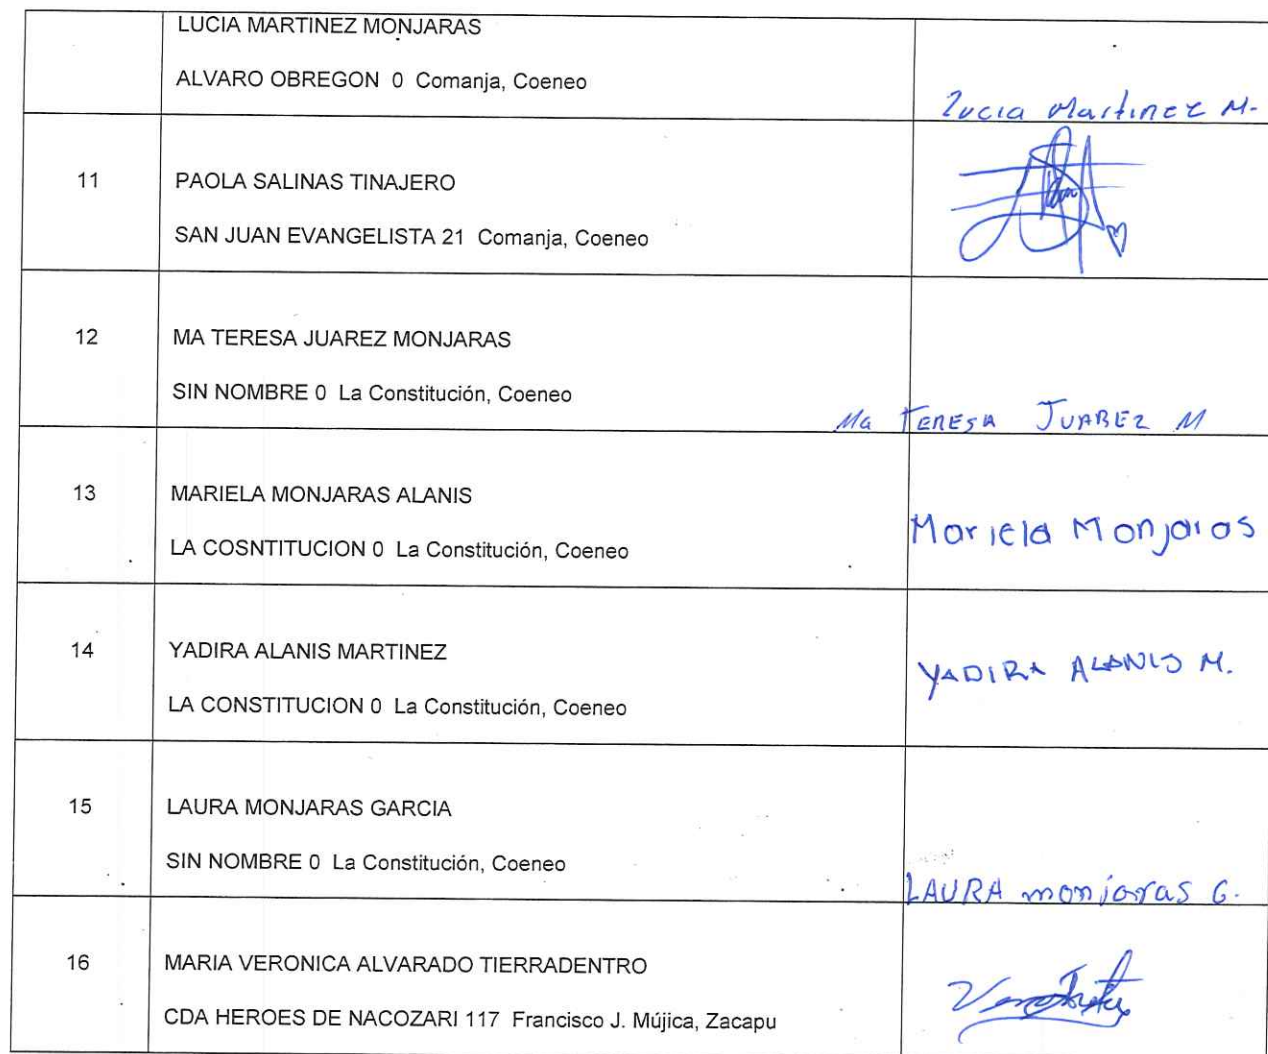 LUCIA MARTINEZ MONJARAS
ALVARO OBREGON 0 Comanja, Coeneo
Lucia Martinez M.
11
PAOLA SALINAS TINAJERO
SAN JUAN EVANGELISTA 21 Comanja, Coeneo
12
MA TERESA JUAREZ MONJARAS
SIN NOMBRE 0 La Constitución, Coeneo
Ma TERESA JUAREZ M
13
MARIELA MONJARAS ALANIS
LA COSNTITUCION 0 La Constitución, Coeneo
Mariela Monjaras
14
YADIRA ALANIS MARTINEZ
LA CONSTITUCION 0 La Constitución, Coeneo
YADIRA ALANIS M.
15
LAURA MONJARAS GARCIA
SIN NOMBRE 0 La Constitución, Coeneo
LAURA monjaras G.
16
MARIA VERONICA ALVARADO TIERRADENTRO
CDA HEROES DE NACOZARI 117 Francisco J. Mújica, Zacapu